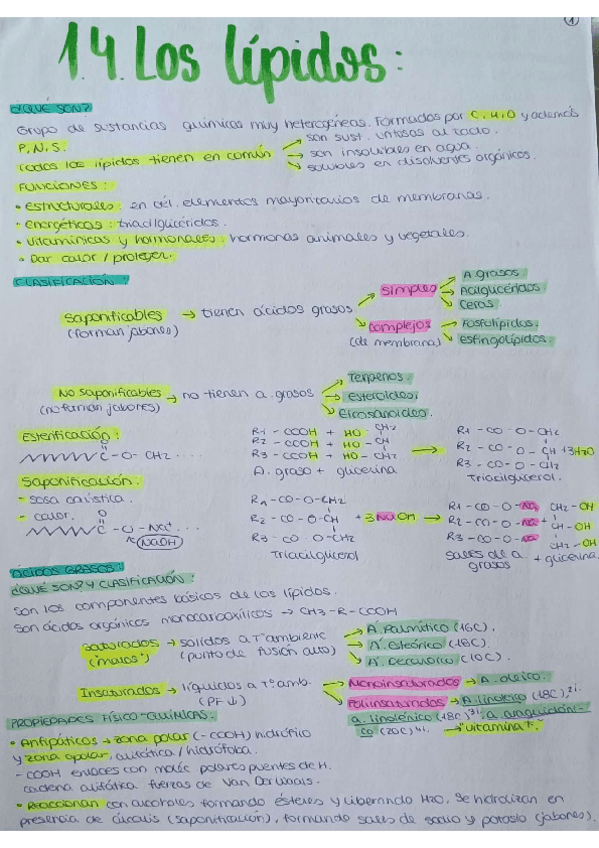 1
1.4. Los lípidos:
¿QUÉ SON?
Grupo de sustancias químicas muy heterogéneas. Formados por C, H, O y además
P, N, S.
Todos los lípidos tienen en común → son sust. untosas al tacto.
→ son insolubles en agua.
→ solubles en disolventes orgánicos.
FUNCIONES:
• Estructurales: en cél. elementos mayoritarios de membranas.
• Energéticas: triacilglicéridos.
• Vitamínicas y hormonales: hormonas animales y vegetales.
• Dar calor / proteger.
CLASIFICACIÓN:
Saponificables → tienen ácidos grasos
(forman jabones)
Simples → A. grasos.
Acilglicéridos
Ceras.
Complejos → Fosfolípidos.
(de membrana) Esfingolípidos.
No Saponificables → no tienen a. grasos
(no forman jabones)
Terpenos.
esteroides.
Eicosanoides.
Esterificación:
O
C - O - CH2 ....
R1 - COOH + HO - CH2
R2 - COOH + HO - CH
R3 - COOH + HO - CH2
A. graso + glicerina
→
R1 - CO - O - CH2
R2 - CO - O - CH + 3H2O
R3 - CO - O - CH2
Triacilglicerol.
Saponificación:
- sosa caústica.
- calor.
O
C - O - Na+ ...
NaOH
R1 - CO - O - CH2
R2 - CO - O - CH + 3 NaOH →
R3 - CO O - CH2
Triacilglicerol
R1 - CO - O - Na CH2 - OH
R2 - CO - O - Na + CH - OH
R3 - CO - O - Na CH2 - OH
Sales de a. + glicerina.
grasos
ÁCIDOS GRASOS:
¿QUÉ SON? Y CLASIFICACIÓN:
Son los componentes básicos de los lípidos.
Son ácidos orgánicos monocarboxílicos → CH3 - R - COOH
Saturados → solidos a Tª ambiente
("malos") (punto de fusión alto)
A. Palmítico (16C).
A. esteárico (18C).
A. Decanoico (10C).
Insaturados → líquidos a Tª amb.
(PF ↓)
Monoinsaturados → A. oleico.
Poliinsaturados → A. linoleico (18C) 2i.
a. linolénico (18C) 3i. a. araquidóni-
co (20C) 4i. → "vitamina F".
PROPIEDADES FÍSICO-QUÍMICAS:
• Anfipáticos → zona polar (- COOH) hidrófilo
y zona apolar, alifática / hidrófoba.
- COOH enlaces con moléc polares puentes de H.
cadena alifática fuerzas de Van Der Waals.
• Reaccionan con alcoholes formando ésteres y liberando H2O, Se hidrolizan en
presencia de álcalis (saponificación), formando sales de sodio y potasio (jabones).